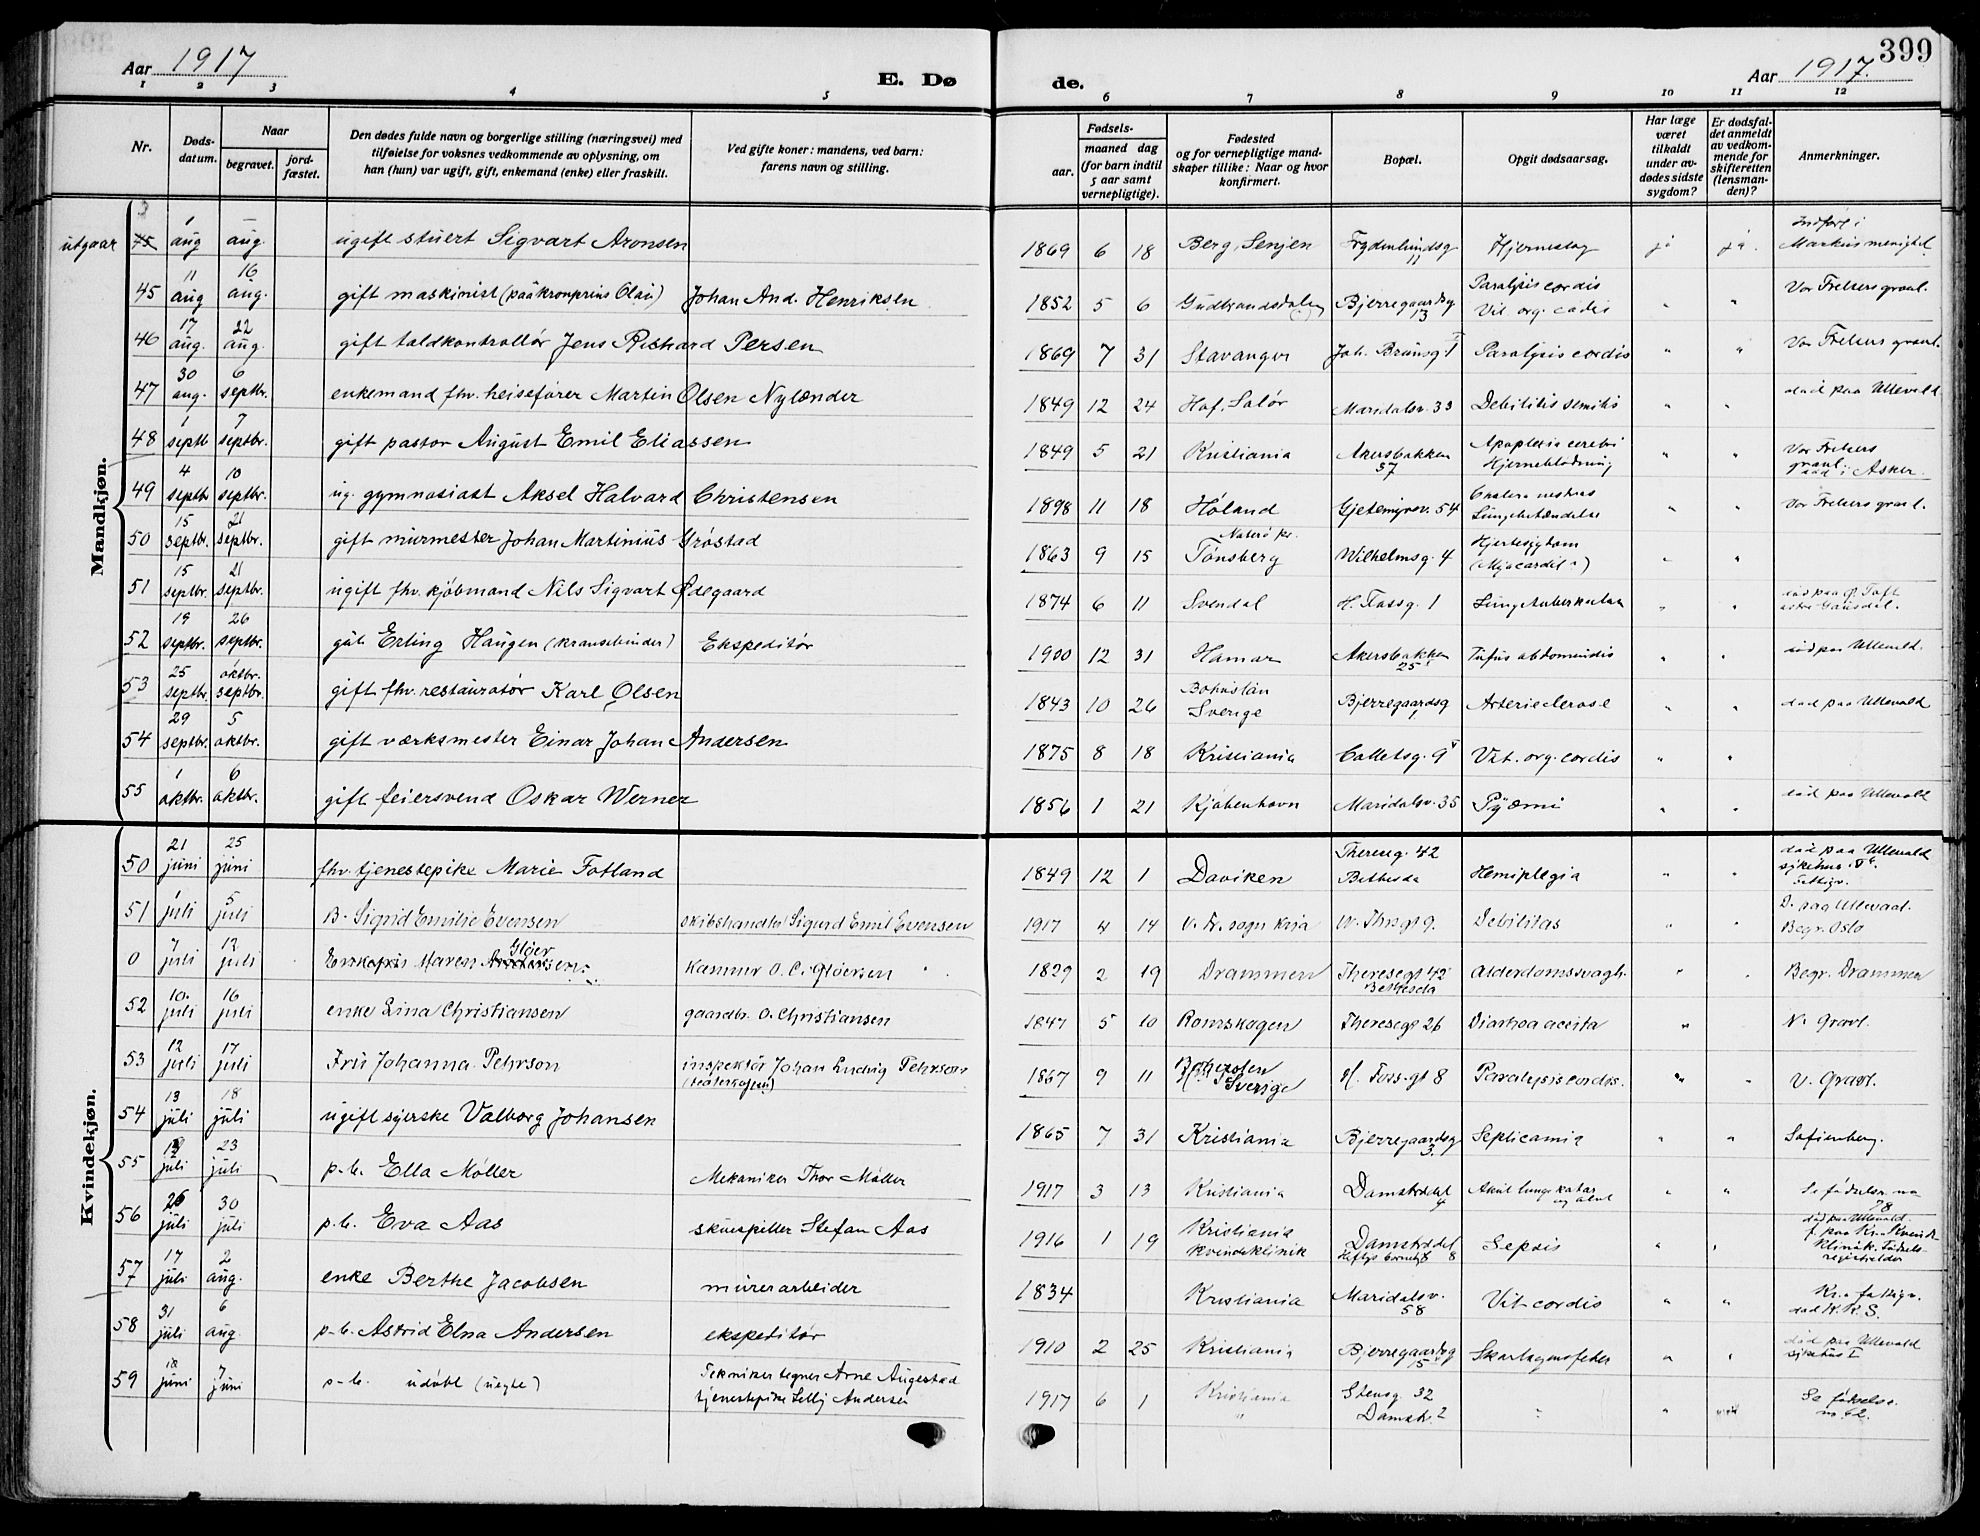 399
Aar 1917
E. Dø
de.
Aar 1917.
1 2 3 4 5 6 7 8 9 10 11 12
Nr.
Døds-
datum.
Naar
begravet.
jord-
fæstet.
Den dødes fulde navn og borgerlige stilling (næringsvei) med
tilføielse for voksnes vedkommende av oplysning, om
han (hun) var ugift, gift, enkemand (enke) eller fraskilt.
Ved gifte koner: mandens, ved barn:
farens navn og stilling.
Fødsels-
aar.
maaned dag
(for barn indtil
5 aar samt
vernepligtige).
Fødested
og for vernepligtige mand-
skaper tillike: Naar og hvor
konfirmert.
Bopæl.
Opgit dødsaarsag.
Har læge
været
tilkaldt
under av-
dødes sidste
sygdom?
Er dødsfal-
det anmeldt
av vedkom-
mende for
skifteretten
(lensman-
den)?
Anmerkninger.
Mandkjøn.
utgaar 45 1 aug aug. ugift stuert Sigvart Aronsen 1869 6 18 Berg, Senjen Frydenlundsg 11 Hjerneslag ja ja. Indført i
Markus menighet.
45 11 aug 16 aug. gift maskinist (paa kronprins Olav) Johan And. Henriksen 1852 5 6 Gudbrandsdalen Bjerregaardsg 13 Paralysis cordis
Vit. org. cordis " " Vor Frelsers gravl.
46 17 aug. 22 aug. gift toldkontrollør Jens Richard Persen 1869 7 31 Stavanger Joh. Brunsg. 1 Paralysis cordis " " Vor Frelsers gravl.
47 30 aug. 6 septbr. enkemand fhv. heisefører Martin Olsen Nylænder 1849 12 24 Hof, Solør Maridalsv. 33 Debilitis senilis " " død paa Ullevold
48 1 septb 7 septbr. gift pastor August Emil Eliassen 1849 5 21 Kristiania Akersbakken 37 Apoplexia cerebri
Hjerneblødning " " Vor Frelsers
gravl. død i Asker.
49 4 septbr 10 septbr. ug. gymnasiast Aksel Halvard Christensen 1898 11 18 Høland Gjetemyrsv. 54 Cholera nostras
Lungebetændelse " " Vor Frelsers gravl.
50 15 septbr. 21 septbr. gift murmester Johan Martinius Grøstad 1863 9 15 Nøterø pr.
Tønsberg Wilhelmsg. 4 Hjertesygdom
(Myocardit) " "
51 15 septbr. 21 septbr. ugift fhv. kjøbmand Nils Sigvart Ødegaard 1874 6 11 Svendal H. Fossg. 1 Lungetuberkulose " "
52 19 septbr. 26 septbr. gut Erling Haugen (kransebinder) Ekspeditør 1900 12 31 Hamar Akersbakken 25 Tyfus abdominalis " " død paa Ullevold.
53 25 septbr. oktbr. septbr. gift fhv. restauratør Karl Olsen 1843 10 26 Bohuslän
Sverige Bjerregaardsg 1 Arteriesclerose " " død paa Ullevold
54 29 septbr. 5 oktbr. gift værksmester Einar Johan Andersen 1875 8 18 Kristiania Colletsg. 9 Vit. org. cordis " "
55 1 oktbr. 6 oktbr. gift feiersvend Oskar Werner 1856 1 21 Kjøbenhavn Maridalsv. 35 Pyæmi " " død paa Ullevold
Kvindekjøn.
50 21 juni 25 juni fhv. tjenestepike Marie Fotland 1849 12 1 Daviken Thereseg. 42
Bethesda Hemiplegia " " død paa Ullevold
51 1 juli 5 juli B. Sigrid Emilie Evensen skibshandler Sigurd Emil Evensen 1917 4 14 V. Fr. sogn Kria W. Thrsgt 9. Debilitas " " D. paa Ullevaal.
Begr. Oslo
0 7 juli 12 juli Enkefru Maren Gløersen kasserer O. C. Gløersen 1829 2 19 Drammen Theresegt 42
Bethesda Alderdomssvagh. " " Begr. Drammen
52 10. juli 16 juli enke Lina Christiansen gaardbr. O. Christiansen 1847 5 10 Romskogen Theresegt 26 Diarrhoa acuta " N. Gravl.
53 12 juli 17 juli Fru Johanna Pehrson inspektør Johan Ludvig Pehrson 1867 9 11 Sverige H. Foss-gt 8 Paralysis cordis. " " V. Gravl.
54 13 juli 18 juli ugift syerske Valborg Johansen 1865 7 31 Kristiania Bjerregaardsg 3. Septicæmia " " Sofienberg.
55 juli 23 juli p.b. Ella Møller Mekaniker Thor Møller 1917 3 13 Kristiania Damstrædet 4 Akut lungekatar " " Se fødselsr. no
78
56 26 juli 30 juli p.b. Eva Aas skuespiller Stefan Aas 1916 1 19 Kristiania
kvindeklinik Damstrædet 8 Sepsis " " død paa Ullevold
57 17 juli 2 aug. enke Berthe Jacobsen murerarbeider 1834 Kristiania Maridalsv. 58 Vit. cordis " "
58 31 juli 6 aug. p.b. Astrid Elna Andersen ekspeditør 1910 2 25 Kristiania Bjerregaardsg 15 Skarlagensfeber " " død paa Ullevold
sykehus
59 18 juni 7 juni p.b. udøbt (uegte) Tekniker tegner Arne Augestad
tjenestepike Lelly Andersen 1917 6 1 Kristiania
" Stensg. 32
Damstr. 2 " " Se fødselsr.
no 62.